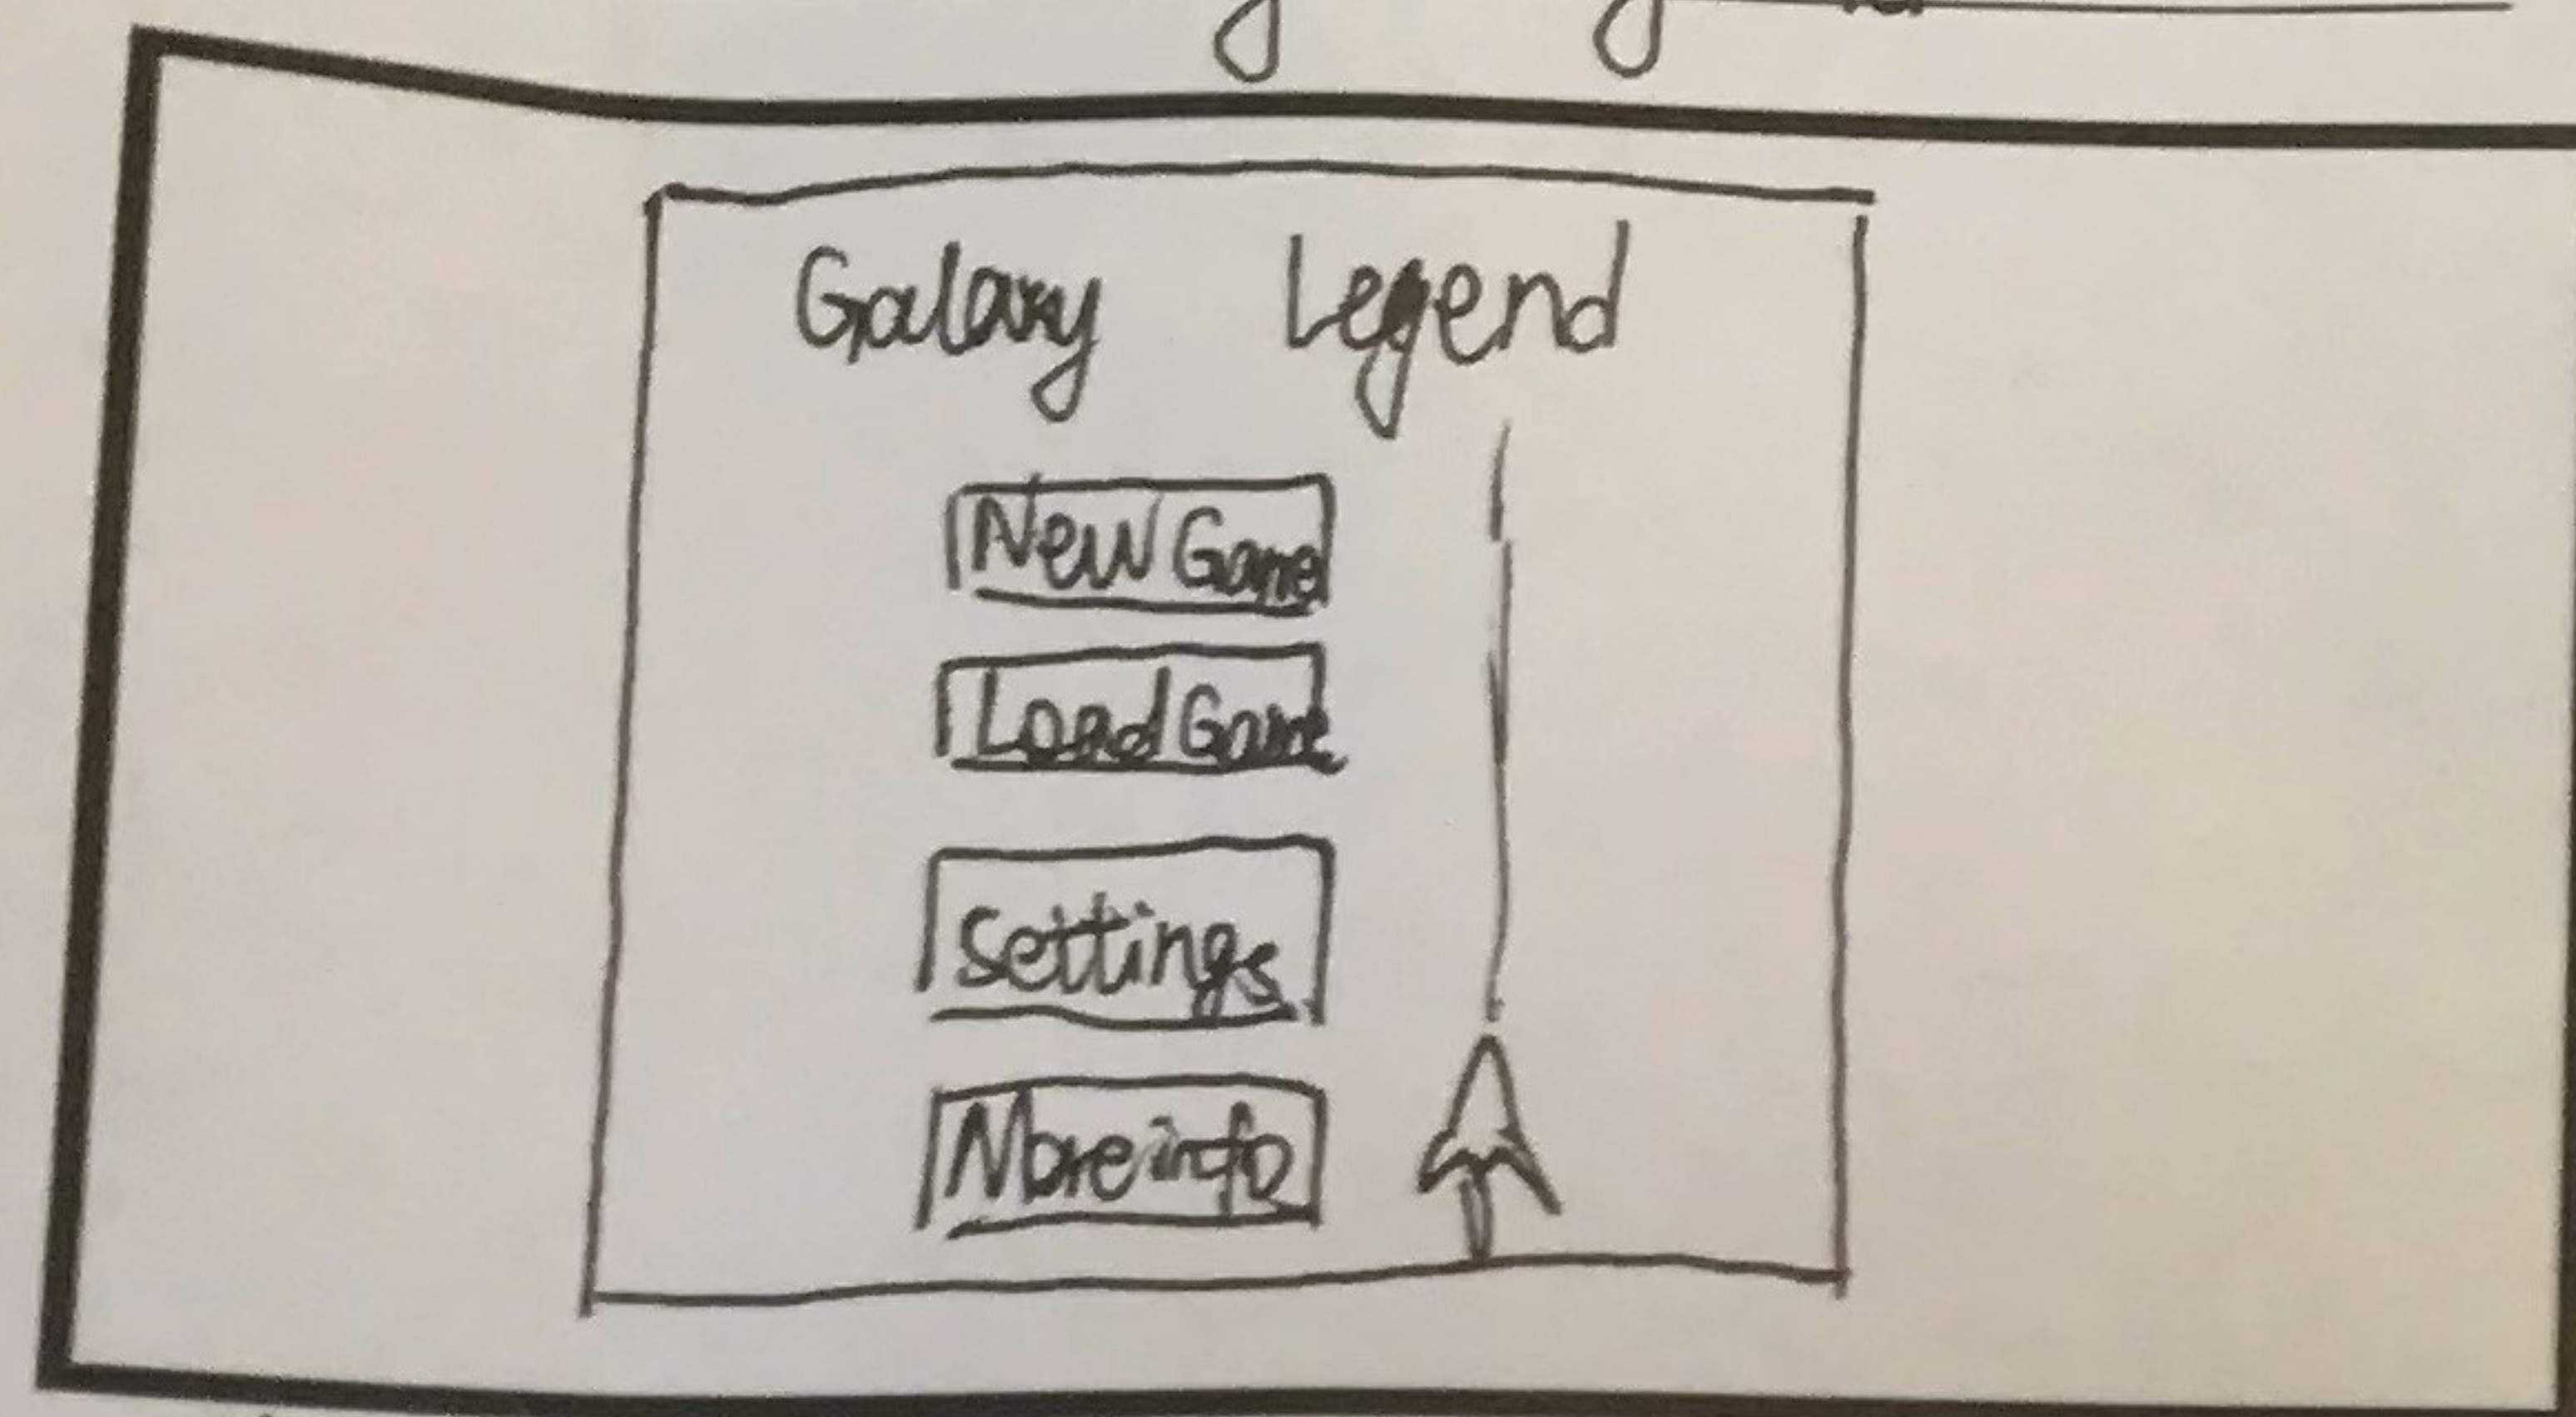 Galaxy Legend
New Game
Load Game
Settings
More info